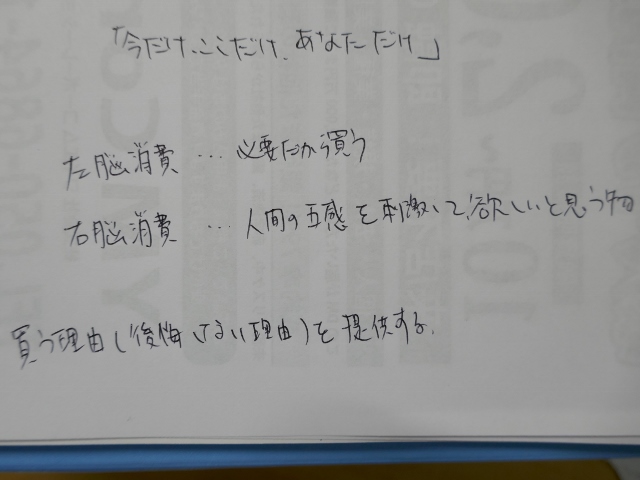 「今だけ、ここだけ、あなただけ」
左脳消費 … 必要だから買う
右脳消費 … 人間の五感を刺激して、欲しいと思う物
買う理由(後悔しない理由)を提供する。